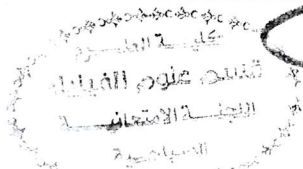 كلية العلوم
قسم علوم الفيزياء
اللجنة الامتحانية